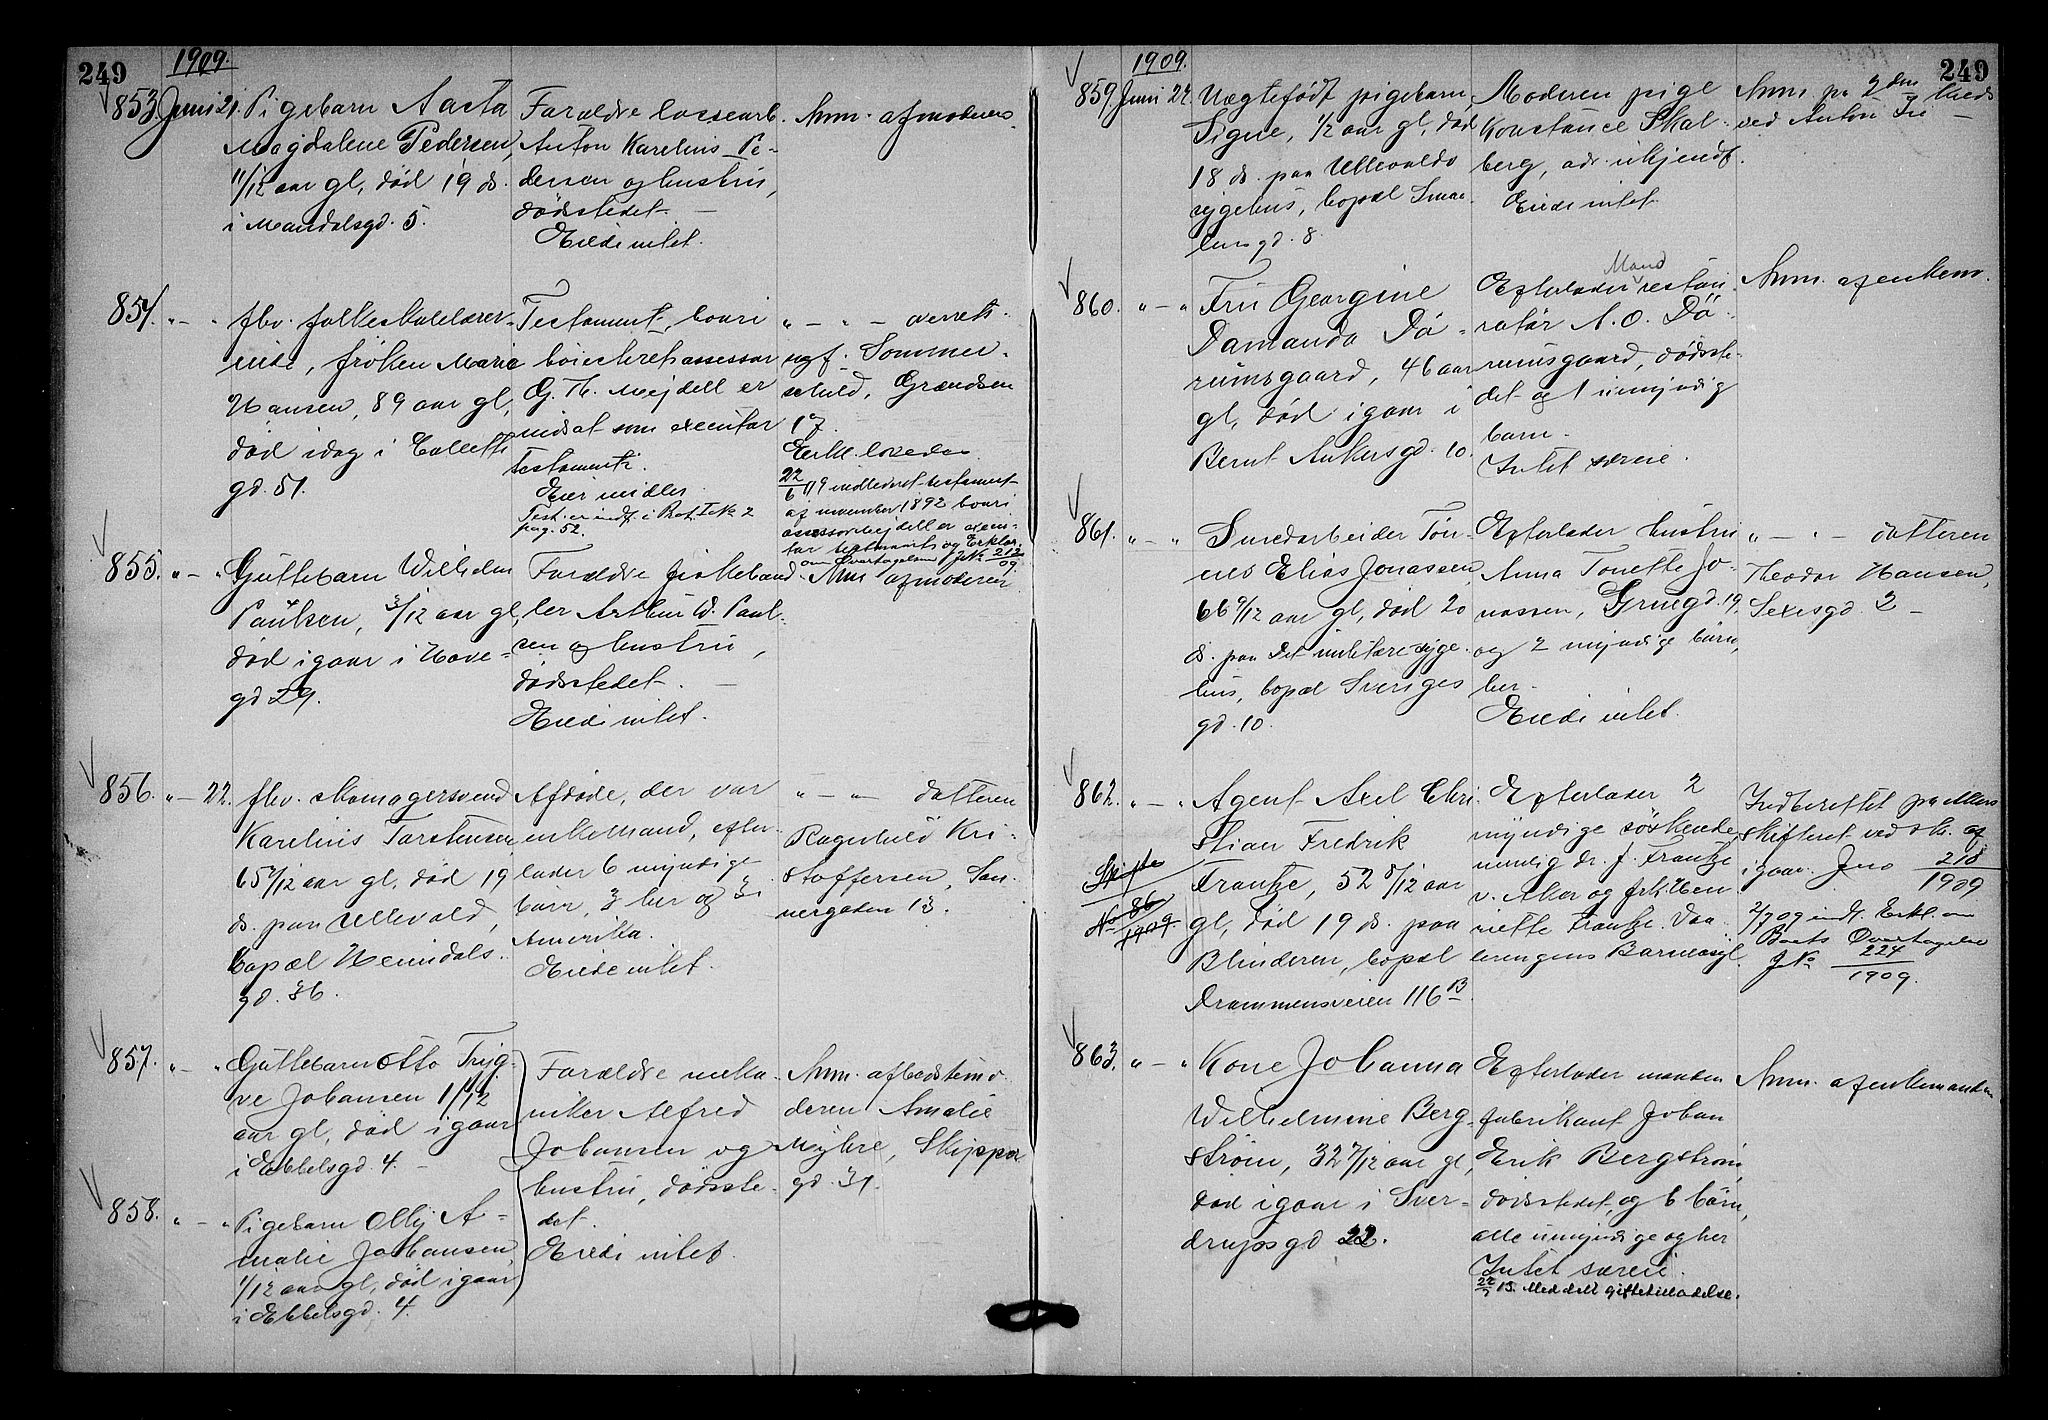 249
1909.
853. Juni 21. Pigebarn Aasta
Magdalene Pedersen,
11/12 aar gl, død 19 ds.
i Mandalsgd. 5.
Forældre lossearb.
Anton Karelius Pe-
dersen og hustru,
dødsstedet. —
Eiede intet.
Anm. af moderen
854. " — " fhv. folkeskolelærer-
inde, frøken Marie
Hansen, 89 aar gl,
død idag i Colletts
gd. 51.
Testament, hvori
høiesteretsassessor
G. Th. Mejdell er
indsat som executor
testamenti.
Eier midler
Test. er indf. i Prot. I No 2
pag. 52.
" — " — overrets-
sagf. Sommer-
schild, Grændsen
17.
Erkl. lovedes
22/6 09 indleveret testament
af november 1892 hvori
assessor Mejdell er exem-
tor testamenti og Erklær.
om Overtagelse J.No 212/09
855. " — " Guttebarn Wilhelm
Paulsen, 3/12 aar gl,
død igaar i Hove-
gd 29.
Forældre fiskehand-
ler Arthur W. Paul-
sen og hustru,
dødsstedet. —
Eiede intet.
Anm af moderen
856. " — 22. fhv. skomagersvend
Karelius Torstensen
65 7/12 aar gl, død 19
ds. paa Ullevold,
bopæl Heimdals-
gd. 36.
Afdøde, der var
enkemand, efter-
lader 6 myndige
børn, 3 her og 3 i
Amerika.
Eiede intet.
" — " datteren
Ragnhild Kri-
stoffersen, Son-
nergaden 13.
857. " — " Guttebarn Otto Tryg-
ve Johansen 1/12
aar gl, død igaar
i Ebbelsgd. 4. —
Forældre meka-
niker Alfred
Johansen og
hustru, dødsste-
det.
Eiede intet.
Anm. af bedstemo-
deren Amalie
Myhre, Skipper
gd. 31.
858. " — " Pigebarn Olly A-
malie Johansen,
1/12 aar gl, død igaar
i Ebbelsgd. 4.
249
1909.
859. Juni 22. Uægtefødt pigebarn
Signe, 1/2 aar gl, død
18 ds. paa Ullevolds
sygehus, bopæl Smaa-
lensgd. 8.
Moderen pige
Konstance Skal-
berg, adr. ukjendt.
Eiede intet
Anm. pr 2den Kreds
ved Anton
860. " — " Fru Georgine
Damanda Dø-
rumsgaard, 46 aar
gl, død igaar i
Bernt Ankersgd. 10.
Mand
Efterlader restau-
ratør A. O. Dø-
rumsgaard, dødsste-
det og 1 umyndig
barn.
Intet særeie.
Anm. af enkem.
861. " — " Smedarbeider Tøn-
nes Elias Jonassen
66 9/12 aar gl, død 20
ds. paa Det militære syge-
hus, bopæl Sveriges
gd. 10.
Efterlader hustru
Anna Tonette Jo-
nassen, Gruegd. 19,
og 2 myndige børn,
her.
Eiede intet.
" — " — datteren
Theodor Hansen,
Sexesgd. 2 —
862. " — " Agent Axel Chri-
stian Fredrik
Frantze, 52 8/12 aar
gl, død 19 ds. paa
Blinderen, bopæl
Drammensveien 116 B
Skifte
No 86/1909.
Efterlader 2
myndige søskende
nemlig dr. J. Frantze
v. Aker og frk. Hen
riette Frantze. Vaa-
lerengens Barneasyl.
Indberettet paa Akers
skifteret ved sk. af
igaar. Jno 218/1909
2/7 09 indl. Erkl. om
Boets Overtagelse
J.No 224/1909.
863. " — " Kone Johanna
Wilhelmine Berg-
strøm, 32 7/12 aar gl,
død igaar i Sver-
drupsgd 22.
Efterlader manden
fabrikant Johan
Erik Bergstrøm,
dødsstedet, og 6 børn,
alle umyndige og her
Intet særeie.
22/7 15. Meddelt giftetilladelse.
Anm. af enkemanden